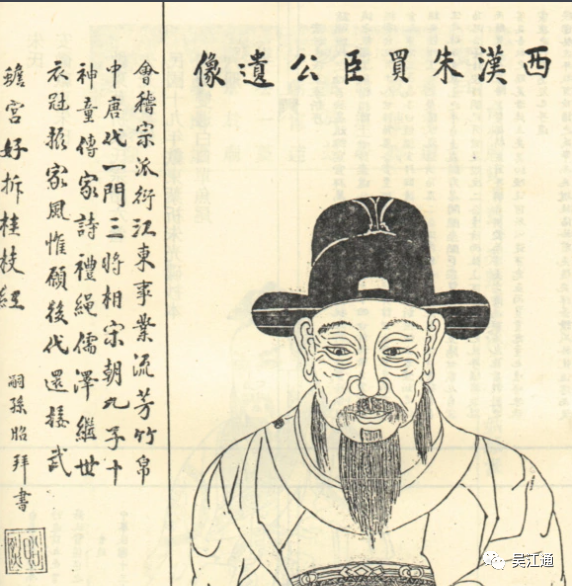 西漢朱買臣公遺像
會稽宗派衍江東事業流芳竹帛
中唐代一門三將相宋朝九子十
神童傳家詩禮繩儒澤繼世
衣冠振家風惟願後代還接武
蟾宮好拆桂枝紅
嗣孫昭拜書
吴江通